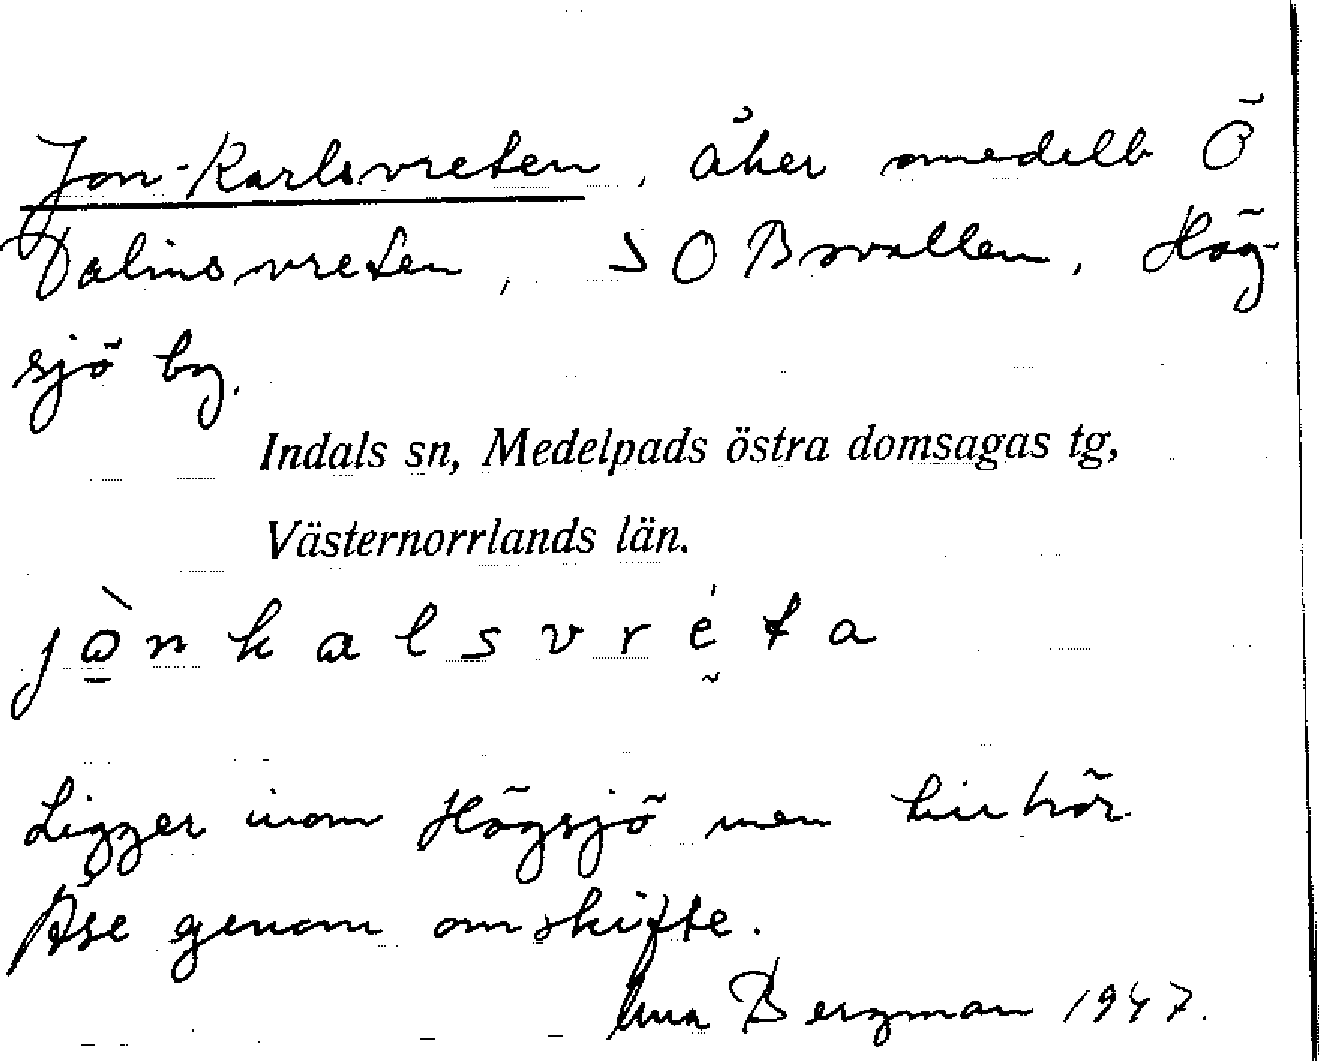 Jon-Karlsvreten, åker omedelb Ö
Dalinsvreten, SO Bsvallen, Hög-
sjö by.
Indals sn, Medelpads östra domsagas tg,
Västernorrlands län.
jò̱nkalsvrḛ́ta
Ligger inom Högsjö men tillhör
Åse genom omskifte.
Una Bergman 1947.